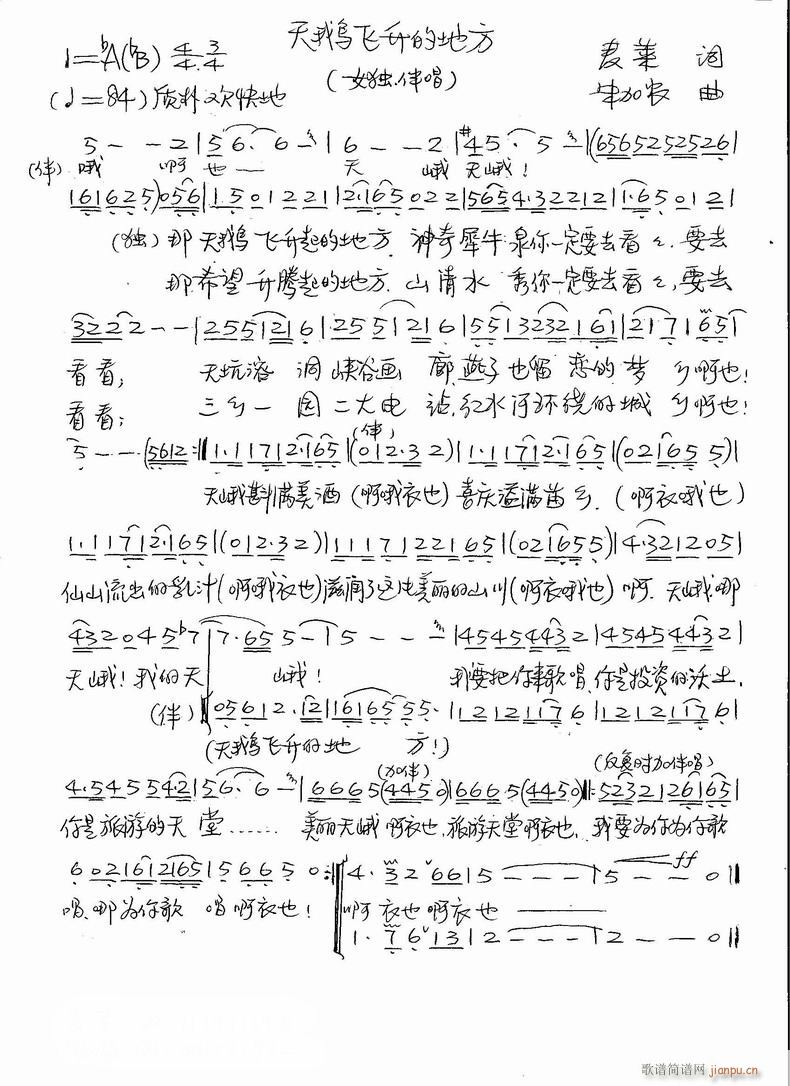 天鹅飞升的地方
1=♭A(♭B) 4/4 3/4 麦莱 词
(女独.伴唱)
(♩=84) 质朴 欢快地 牟加农 曲
5 - - 2 | 5 6. 6 - | 6 - - 2 | #4 5. 5 - | (6 5 6 5 2 5 2 5 2 6 |
(伴) 哦 啊 也 — 天 峨 天峨!
1 6 1 6 2 5) 0 5 6 | 1. 5 0 1 2 2 1 | 2. 1 6 5 0 2 2 | 5 6 5 4. 3 2 2 1 2 | 1. 6 5 0 1 2 |
(独) 那 天鹅 飞升起的地方. 神奇犀牛 泉你一定要去看々. 要去
那.希望 升腾起的地方. 山清水 秀你一定要去看々, 要去
3 2 2 2 - - | 2 5 5 1 2 1 6 | 2 5 5 1 2 1 6 | 5 5 1 3 2 3 2 1 6 1 | 2 1 7 1 6 5 |
看看; 天坑溶 洞 峡谷画 廊.燕子也留 恋的 梦 乡啊也!
看看; 三乡一 园 二大电 站.红水河环绕的城 乡啊也!
(伴)
5 - - - (5 6 1 2 :‖ 1. 1 1 7 1 2. 1 6 5 | (0 1 2. 3 2) | 1. 1 1 7 1 2. 1 6 5 | (0 2 1 6 5 5) |
天峨斟满美酒 (啊哦衣也) 喜庆溢满苗乡. (啊衣哦也)
1. 1 1 7 1 2. 1 6 5 | (0 1 2. 3 2) | 1 1 1 7 1 2 2 1 6 5 | (0 2 1 6 5 5) | 4. 3 2 1 2 0 5 |
仙山流出的乳汁 (啊哦衣也) 滋润了这片美丽的山川 (啊衣哦也) 啊. 天峨.那
4 3 2 0 4 5 ♭7 | 7. 6 5 5 - | 5 - - - | 4 5 4 5 4 4 3 2 | 4 5 4 5 4 4 3 2 |
天峨! 我的天 峨! 我要把你来歌唱.你是投资的沃土.
(伴) 0 5 6 1 2. 1 2 | 1 6 1 6 5 5 5. | 1 2 1 2 1 1 7 6 | 1 2 1 2 1 1 7 6 |
(天鹅飞升的地 方!)
(加伴) (反复时加伴唱)
4. 5 4 5 5 4 2 | 5 6. 6 - | 6 6 6 5 (4 4 5 0) | 6 6 6 5 (4 4 5 0) ‖: 5 2 3 2 1 2 6 1 6 5 |
你是旅游的天 堂…… 美丽天峨 啊衣也.旅游天堂啊衣也. 我要为你为你歌
ff
6 0 2 1 6 1 2 1 6 5 | 5 6 6 5 0 :‖ 4. 3 2 6 6 | 5 - - - | 5 - - 0 ‖
唱.那为你歌 唱啊衣也! 啊衣也啊衣也 ——
1. 7 6 1 3 | 2 - - - | 2 - - 0 ‖
歌谱简谱网
jianpu.cn